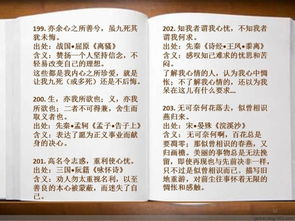 199. 亦余心之所善兮,虽九死其
犹未悔。
出处:战国•屈原《离骚》
含义:赞扬一个人坚持信念,不
轻易改变自己的理想。
这些都是我内心之所珍爱,就是
让我九死(或多死)还是不后悔。
200. 生,亦我所欲也;义,亦我
所欲也,二者不可得兼,舍生而
取义者也。
出处:先秦•孟轲《孟子•告子上》
含义:表达了愿为正义事业而献
身的决心。
201. 高名令志惑,重利使心忧。
出处:三国•阮籍《咏怀诗》
含义:劝人勿太重视名利,以至
善良的本心被蒙蔽,而迷失了自
己。
202. 知我者谓我心忧,不知我者
谓我何求。
出处:先秦《诗经•王风•黍离》
含义:感叹知己难求的忧思和苦
闷。
了解我心情的人,认为我心中惆
怅;不了解我心情的,还以为我
呆在这儿有什么要求呢?
203. 无可奈何花落去,似曾相识
燕归来。
出处:宋•晏殊《浣溪沙》
含义:无可奈何啊,百花总是
要凋零;似曾相识的春燕,又
归画檐。美丽的事物总是无法挽
留,即使再现也与先前决非一样,
只不过是似曾相识而已。描写旧
地重游,对前尘往事怀着无限的
惆怅和感触。